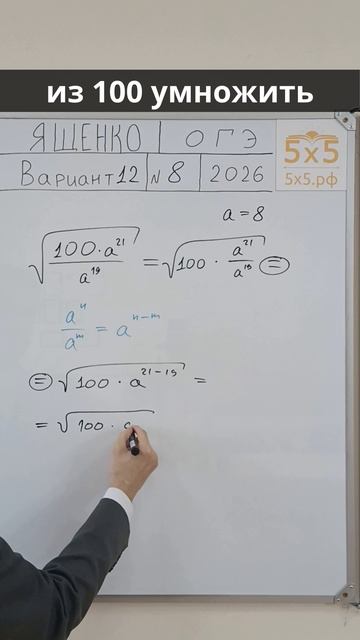 из 100 умножить
ЯЩЕНКО ОГЭ
Вариант 12 №8 2026
5х5
5х5.рф
a = 8
√(100·a²¹ / a¹⁹) = √(100 · a²¹ / a¹⁹) =
aⁿ / aᵐ = aⁿ⁻ᵐ
= √(100 · a²¹⁻¹⁹) =
= √(100 ·